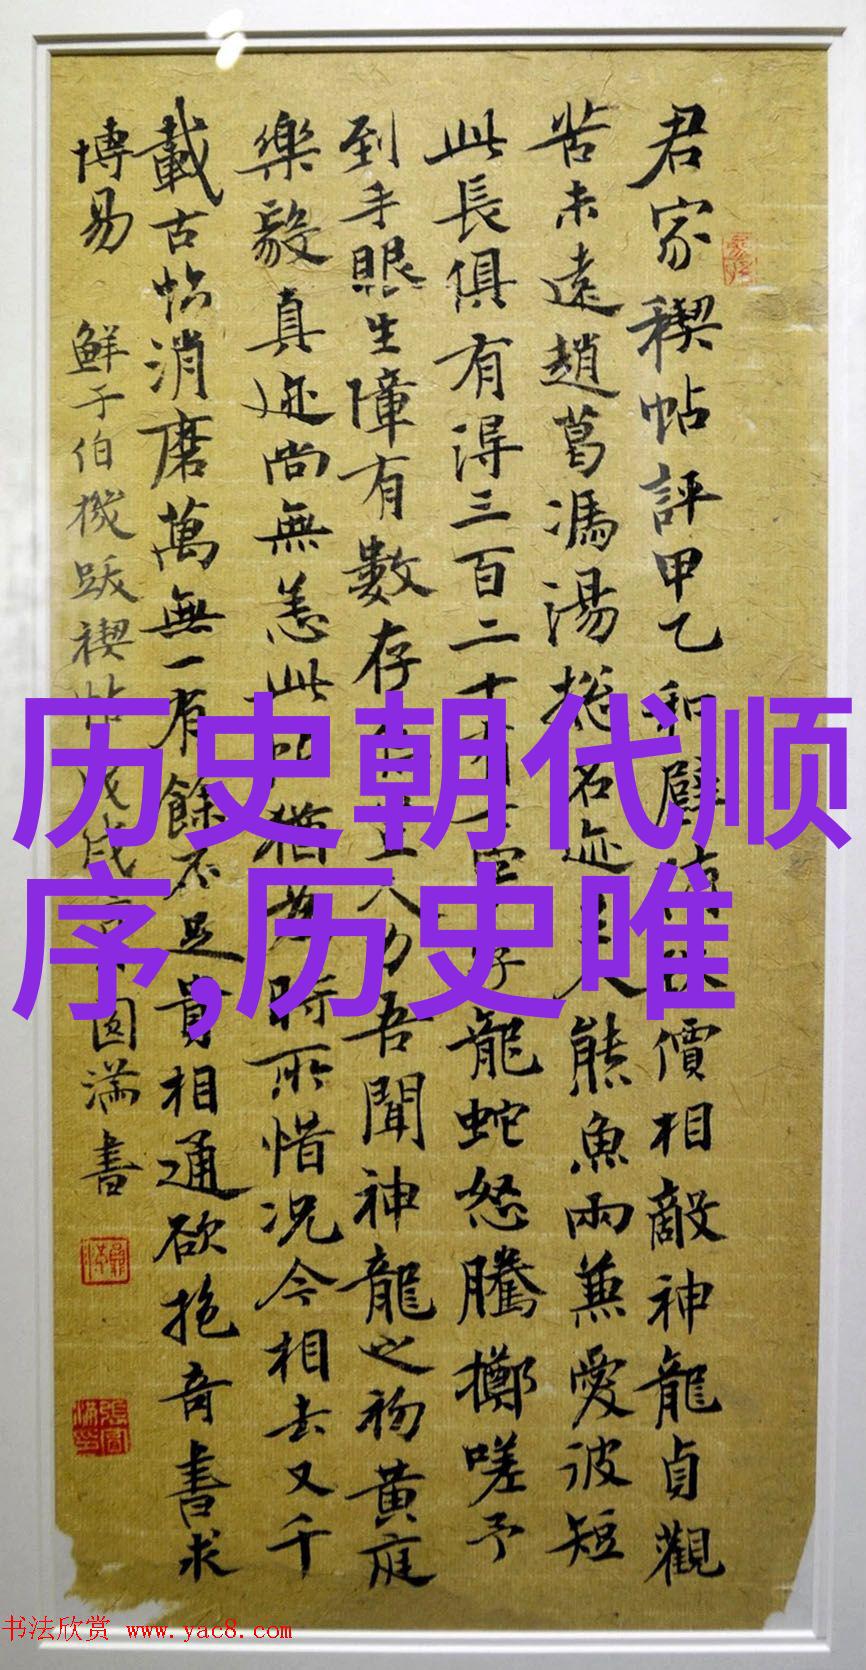 君家稧帖評甲乙和璧價相敵神龍貞觀
苦未遠趙葛馮湯捴名迹人熊魚兩兼愛彼短
此長俱有得三百二十有字好龍蛇怒騰擲嗟予
到手眼生障有數存人力吾聞神龍之初黃庭
樂毅真迹尚無恙此帖猶為時所惜況今相去又千
載古帖消磨萬無一有餘不足貴相通欲抱奇書求
博易 鮮于伯機跋禊帖戊戌圓滿書
历史朝代顺
序,历史唯
书法欣赏 www.yac8.com